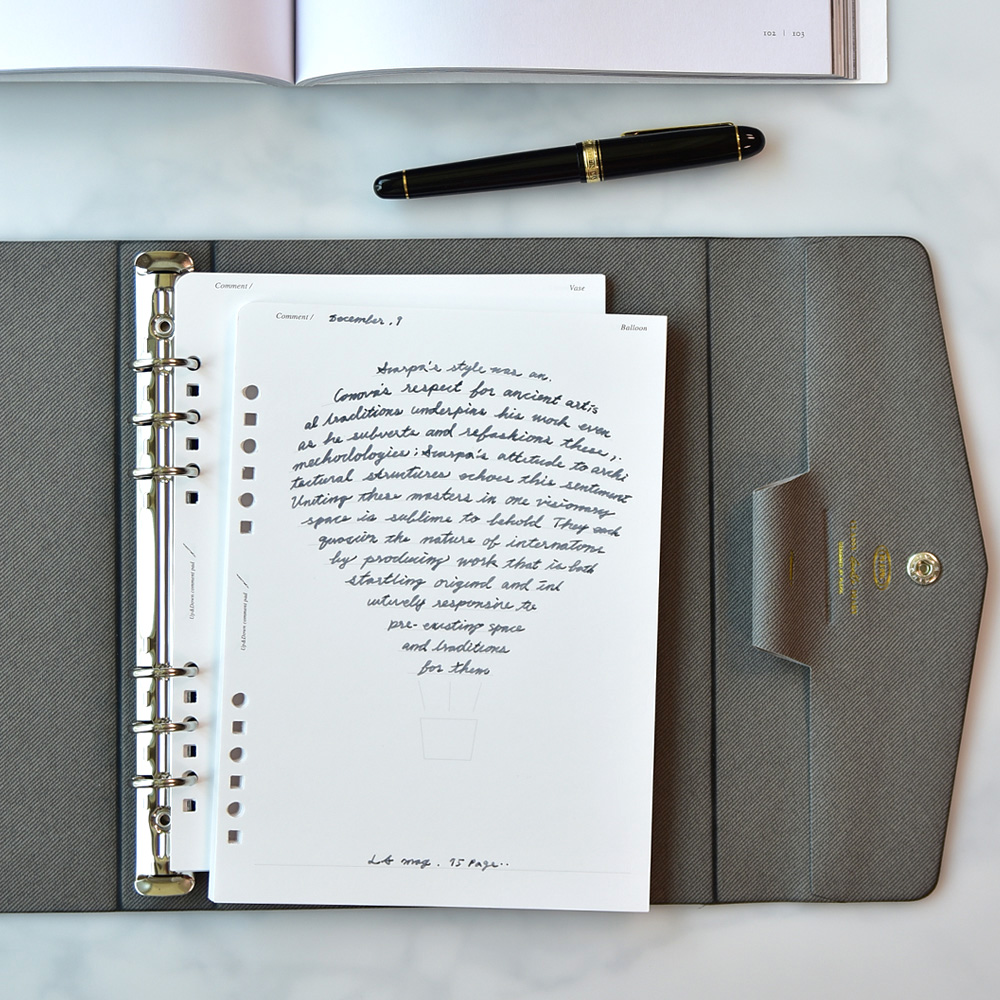 102 | 103
Comment /
Vase
Comment / December, 9
Balloon
Scarpa's style was an.
Canova's respect for ancient artis
al traditions underpins his work even
as he subverts and refashions these,.
mechodologies; Scarpa's attitude to archi
tectural structures echoes this sentiment
Uniting these masters in one visionary
space is sublime to behold They each
the nature of internations
by producing work that is both
startling original and int
uitively responsive to
pre-existing space
and traditions
for them
Up&Down comment pad
Up&Down comment pad
mag. 75 Page..